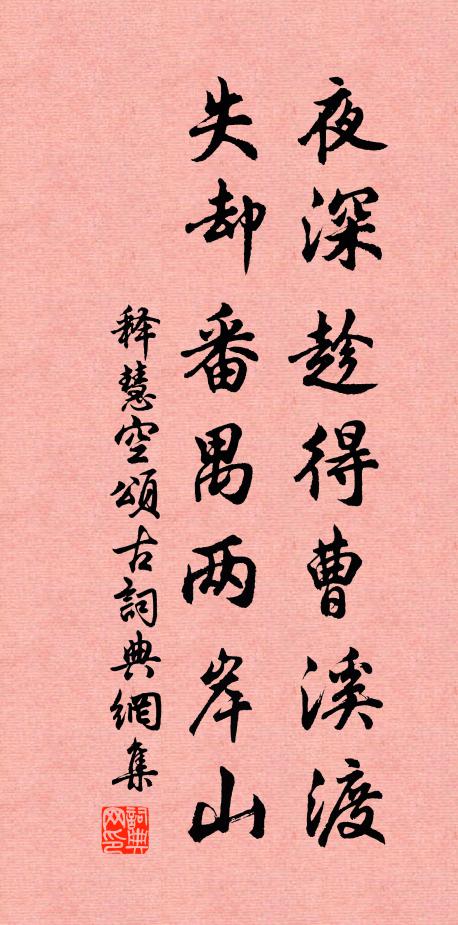 夜深趁得曹溪渡
失却番禺两岸山
释慧空頌古詞典網集
詞典网印